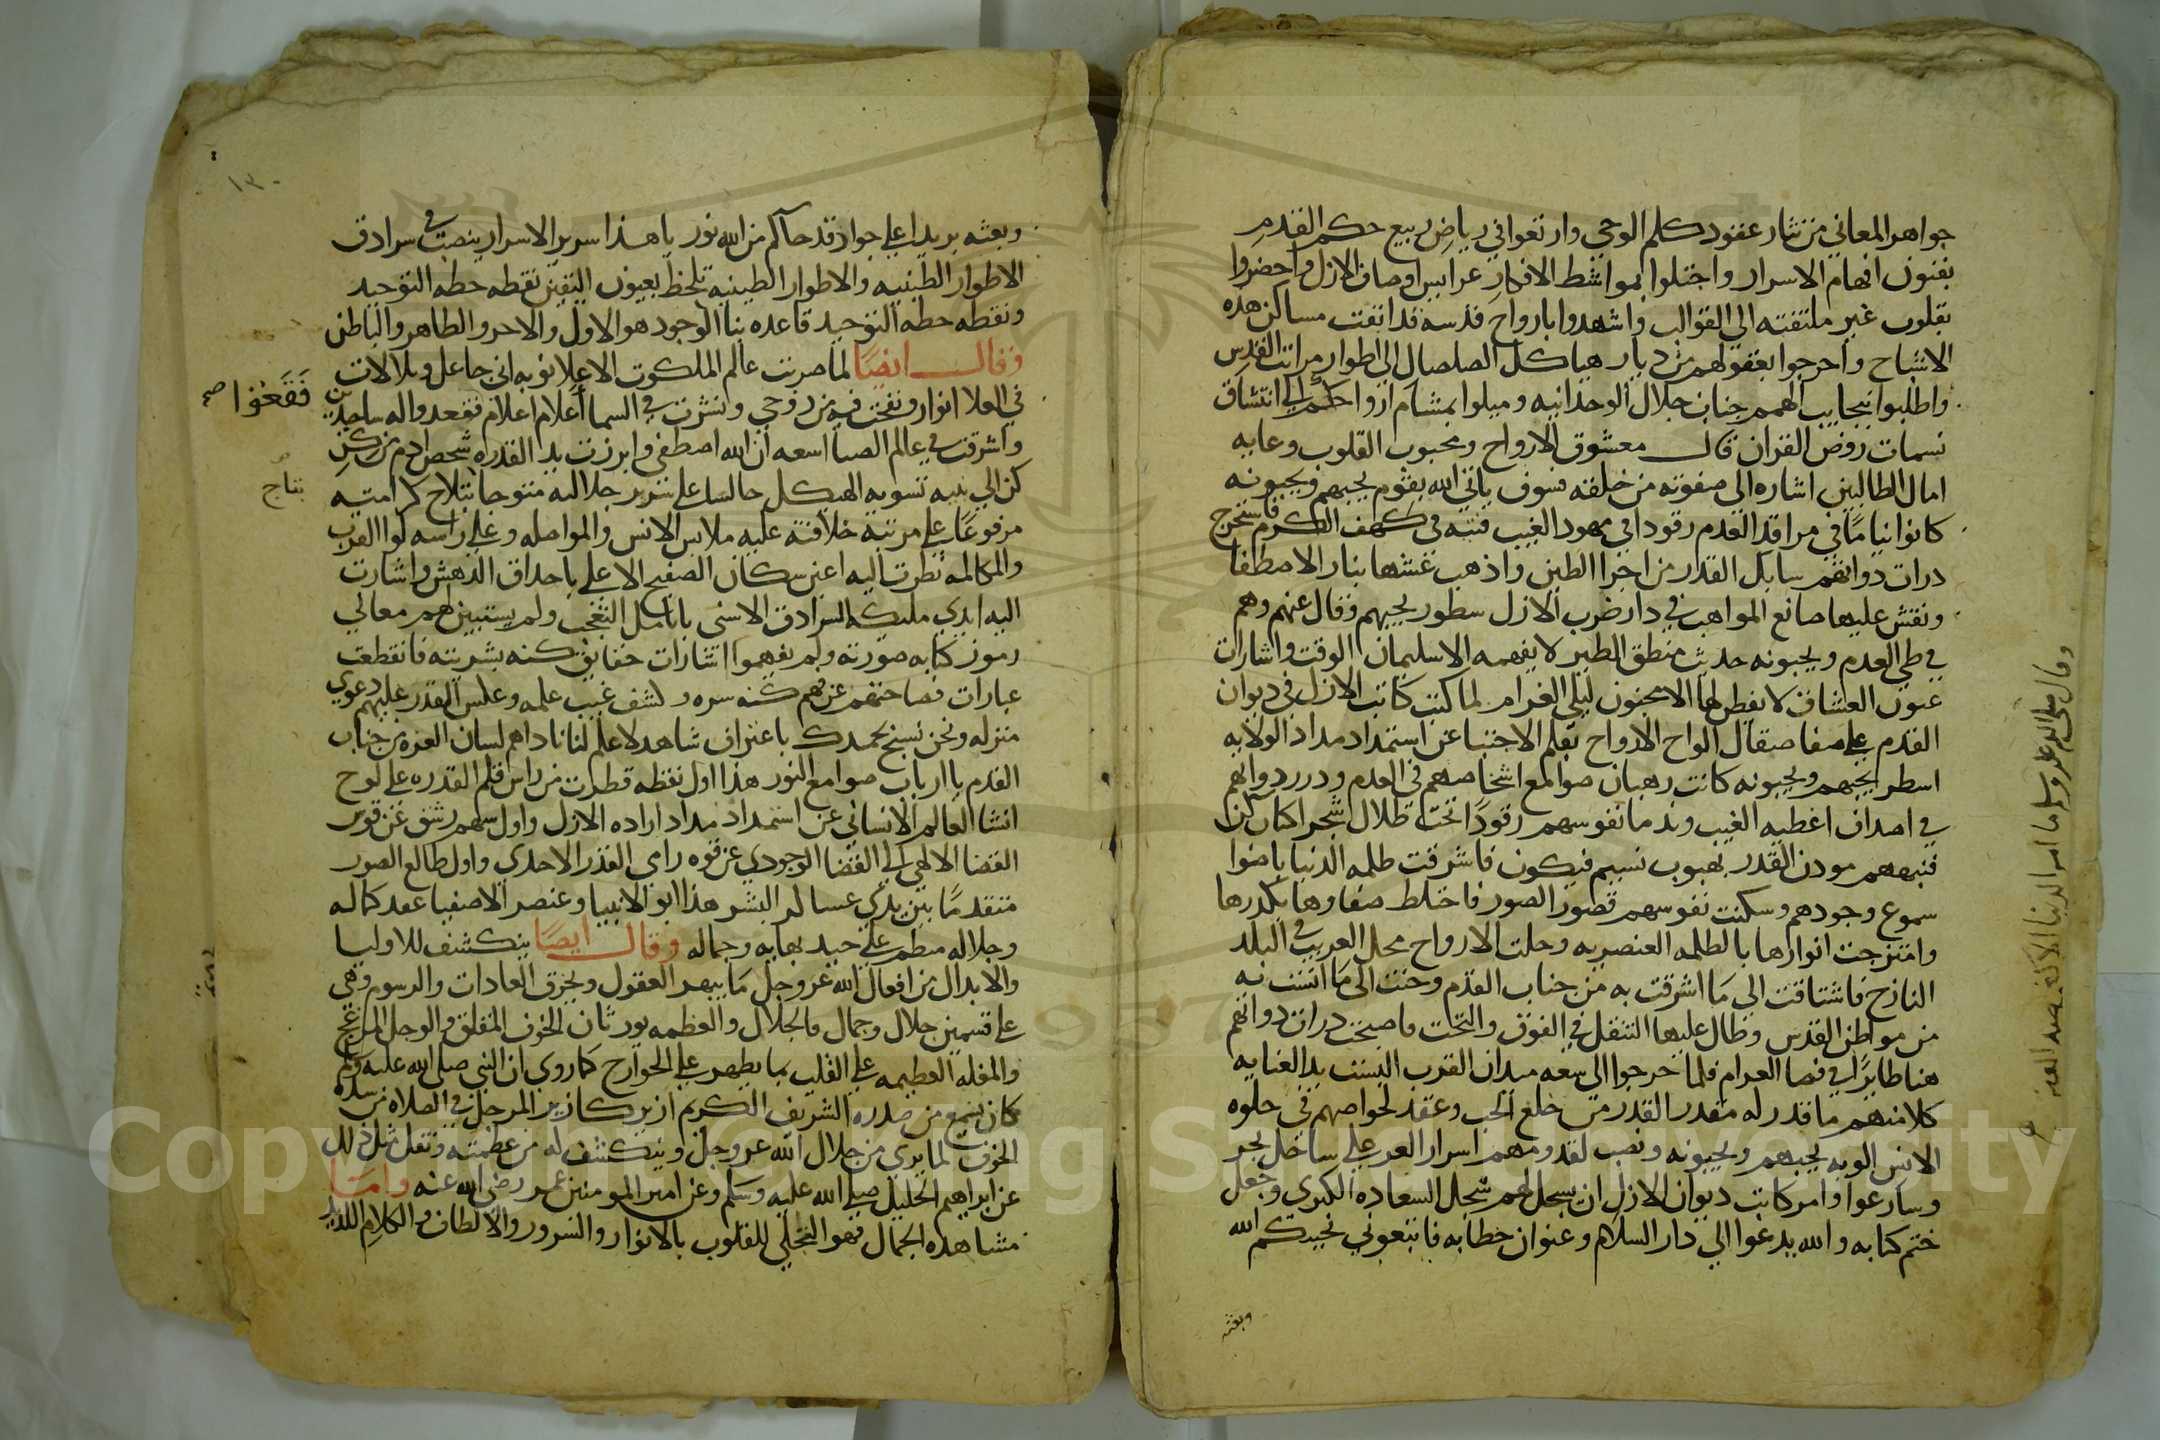 جواهر المعاني من نثار عقود كلم الوحي وارتعوا في رياض ربيع حكم القدم
بفنون افهام الاسرار واجتلوا بمواشط الافكار عرايس اوصاف الازل واحضروا
بقلوب غير ملتفته الي القوالب واشهدوا بارواح قدسه قد انفت مساكن هذه
الاشباح واخرجوا بعقولهم من ديار هياكل الصلصال الي اطوار مراتب القدس
واطلبوا بنجايب الهمم جناب جلال الوحدانيه وميلوا بمشام ارواحكم الي انتشاق
نسمات روض القران قال معشوق الارواح ومحبوب القلوب وغايه
امال الطالبين اشاره الي صفوته من خلقه فسوف ياتي الله بقوم يحبهم ويحبونه
كانوا نياما في مراقد العدم رقودا في مهود الغيب فتيه في كهف الكرم فاستخرج
درات ذواتهم سابك القدر من اجزا الطين واذهب غشها بنار الاصطفا
ونقش عليها صانع المواهب في دار ضرب الازل سطور يحبهم وقال عنهم وهم
في طي العدم ويحبونه حديث منطق الطير لا يفهمه الا سليمان الوقت واشارات
عيون العشاق لا يفطن لها الا مجنون ليلي الغرام لما كتب كاتب الازل في ديوان
القدم علي صفا صقال الواح الارواح بقلم الاجتبا عن استمداد مداد الولايه
اسطر يحبهم ويحبونه كانت رهبان صوامع اشخاصهم في العدم ودرر ذواتهم
في اصداف اغطيه الغيب وندما نفوسهم رقودا تحت ظلال شجر اكنان كن
فنبههم موذن القدر بهبوب نسيم فيكون فاشرقت ظلمه الدنيا باضوا
شموع وجودهم وسكنت نفوسهم قصور الصور فاختلط صفاوها بكدرها
وامتزجت انوارها بالظلمه العنصريه وحلت الارواح محل الغريب في البلد
النازح فاشتاقت الي ما اشرقت به من جناب القدم وحنت الي ما انست به
من مواطن القدس وطال عليها التنقل في الفوق والتحت فاصبحت درات ذواتهم
هنا طايرا في فضا الغرام فلما خرجوا الي سعه ميدان القرب البست يد العنايه
كلا منهم ما قدر له مقدر القدر من خلع الحب وعقد لخواصهم في خلوه
الانس الويه يحبهم ويحبونه ونصب لقدومهم اسرار العز علي ساحل بحر
وسارعوا وامر كاتب ديوان الازل ان يسجل لهم سجل السعاده الكبري وجعل
ختم كتابه والله يدعوا الي دار السلام وعنوان خطابه فاتبعوني يحببكم الله
وبعثه
وقال صلي الله عليه وسلم ما
١٣٠
وبعثه بريدا علي جواد قد جاكم من الله نور يا هذا سرير الاسرار ينصب في سرادق
الاطوار الطينيه والاطوار الطينيه تلحظ بعيون اليقين نقطه خطه التوحيد
ونقطه خطه التوحيد قاعده بنا الوجود هو الاول والاخر والظاهر والباطن
وقال ايضا لما ضربت عالم الملكوت الاعلي نوبه اني جاعل وتلالات
في العلا انوار ونفخت فيه من روحي ونشرت في السما اعلام اعلام فقعدوا له ساجدين
فقعوا صح
واشرقت في عالم الصبا اشعه ان الله اصطفي وابرزت يد القدره شخص ادم من ركن
كن الي بنيه تسويه الهيكل جالسا علي سرير جلاله متوجا بتلاح كرامته
بتاج
مرفوعا علي مرتبه خلافته عليه ملابس الانس والمواصله وعلي راسه لوا القرب
والمكالمه نظرت اليه اعين سكان الصفيح الاعلي باحداق الدهش واشارت
اليه ايدي مليكه السرادق الاسني بانامل التعجب ولم يستبين لهم معاني
رموز كتابه صورته ولم يفهموا اشارات حقايق كنه بشريته فانقطعت
عبارات فصاحتهم عن فهم كنه سره وكشف غيب علمه وعكس القدر عليهم دعوي
منزله ونحن نسبح بحمدك باعتراف شاهد لا علم لنا ناداهم لسان العزه من جناب
القدم يا ارباب صوامع النور هذا اول نقطه قطرت من راس قلم القدره علي لوح
انشا العالم الانساني عن استمداد مداد اراده الازل واول سهم رشق عن قوس
القضا الالهي الي الفضا الوجودي عن قوه رامي القدر الاحدي واول طالع الصور
متقدما بين يدي عساكر البشر هذا ابو الانبيا وعنصر الاصفيا عقد كماله
وجلاله منظم علي جيد بهايه وجماله وقال ايضا ينكشف للاوليا
والابدال من افعال الله عز وجل ما يبهر العقول ويخرق العادات والرسوم وهي
علي قسمين جلال وجمال فالجلال والعظمه يورثان الخوف المقلق والوجل المزعج
والغلبه العظيمه علي القلب بما يظهر علي الجوارح كما روي ان النبي صلي الله عليه وسلم
كان يسمع من صدره الشريف الكريم ازيز كازيز المرجل في الصلاه من شده
الخوف لما يري من جلال الله عز وجل وينكشف له من عظمته ونقل مثل ذلك
عن ابراهيم الخليل صلي الله عليه وسلم وعن امير المومنين عمر رضي الله عنه واما
مشاهده الجمال فهو التجلي للقلوب بالانوار والسرور والالطاف والكلام اللذيذ
Copyright © King Saud University
1957